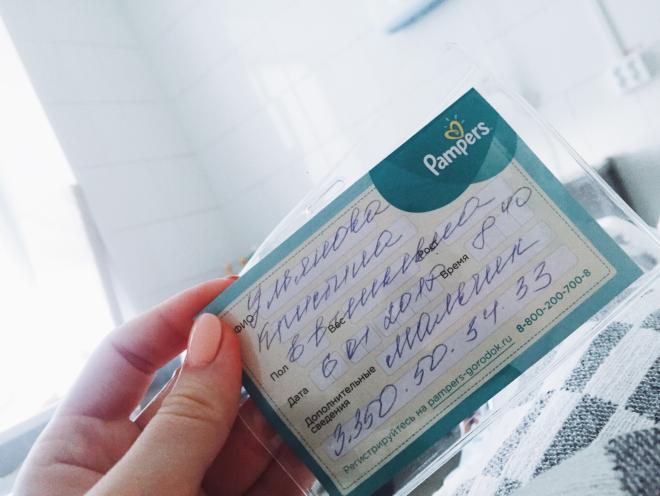 Pampers
ФИО Ульянова
Кристина
Рост
Пол Вес
Дата Время 8 40
Дополнительные мальчик
сведения
3.350. 50. 34 33
Регистрируйтесь на pampers-gorodok.ru 8-800-200-700-8